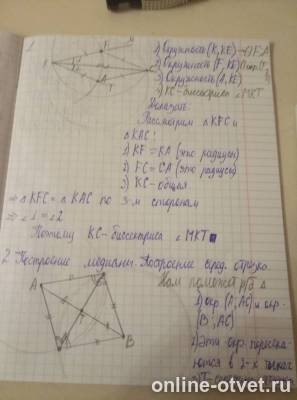 1) Окружность (К, КЕ)
2) Окружность (F, КЕ)
3) Окружность (А, КЕ)
4) КС - биссектриса ∠МКТ
Доказать:
Рассмотрим △KFC и
△KAC:
1) KF = KA (это радиусы)
2) FC = CA (это радиусы)
3) KC - общая
⇒ △KFC = △KAC по 3-м сторонам
⇒ ∠1 = ∠2
Поэтому КС - биссектриса ∠МКТ
2. Построение медианы. Построение серед. отрезка.
Нам поможет р/б △
A
B
1) окр. (А, АС) и окр.
(В, АС)
2) Эти окр. пересека
ются в 2-х точках
online-otvet.ru